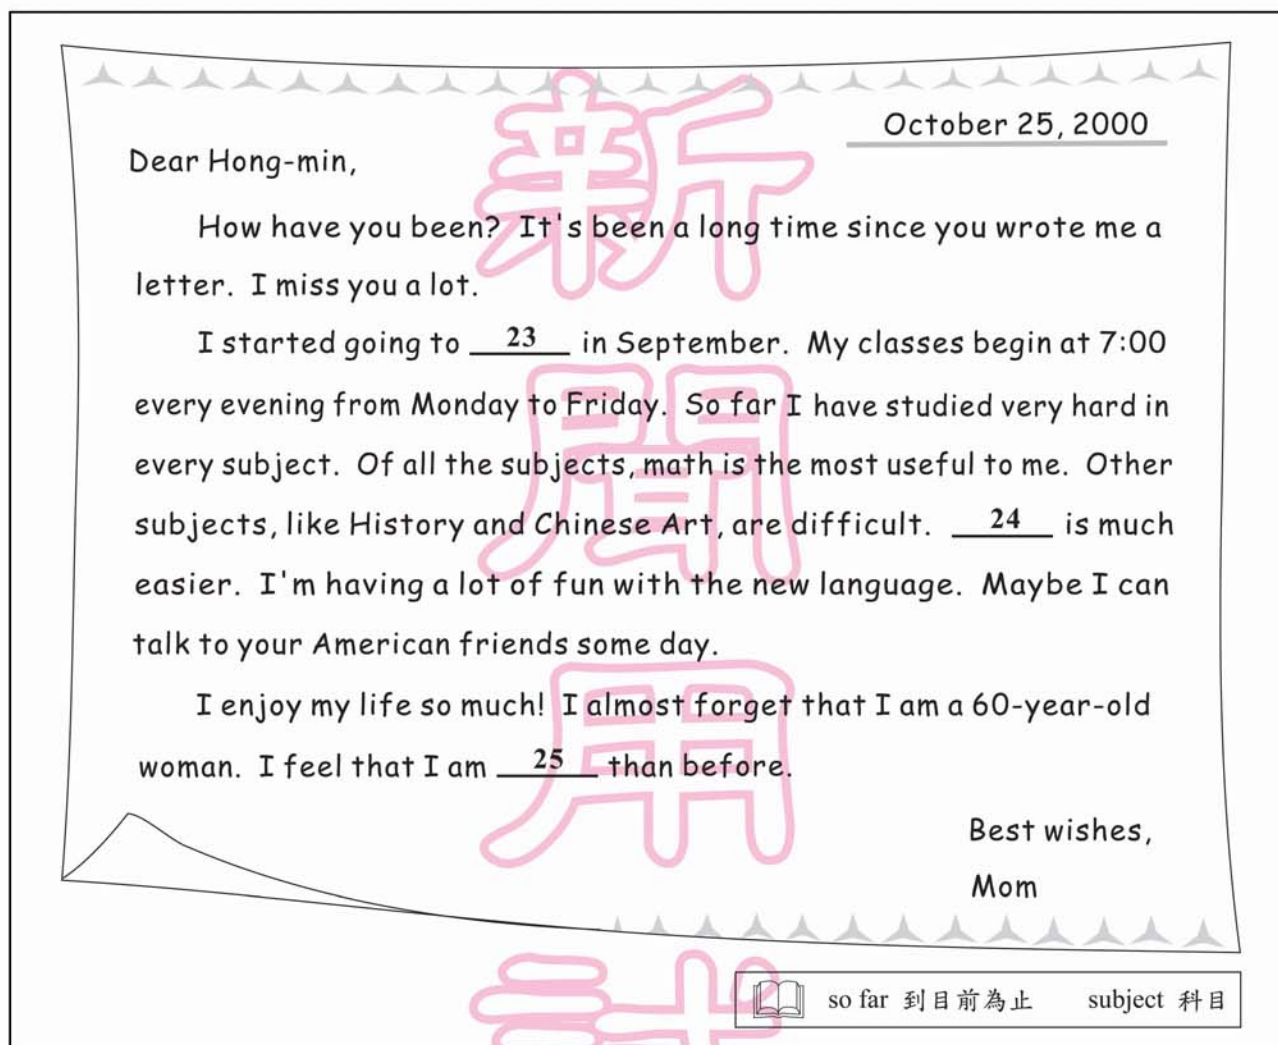 October 25, 2000
Dear Hong-min,
How have you been? It's been a long time since you wrote me a
letter. I miss you a lot.
I started going to 23 in September. My classes begin at 7:00
every evening from Monday to Friday. So far I have studied very hard in
every subject. Of all the subjects, math is the most useful to me. Other
subjects, like History and Chinese Art, are difficult. 24 is much
easier. I'm having a lot of fun with the new language. Maybe I can
talk to your American friends some day.
I enjoy my life so much! I almost forget that I am a 60-year-old
woman. I feel that I am 25 than before.
Best wishes,
Mom
so far 到目前為止 subject 科目
新
聞
用